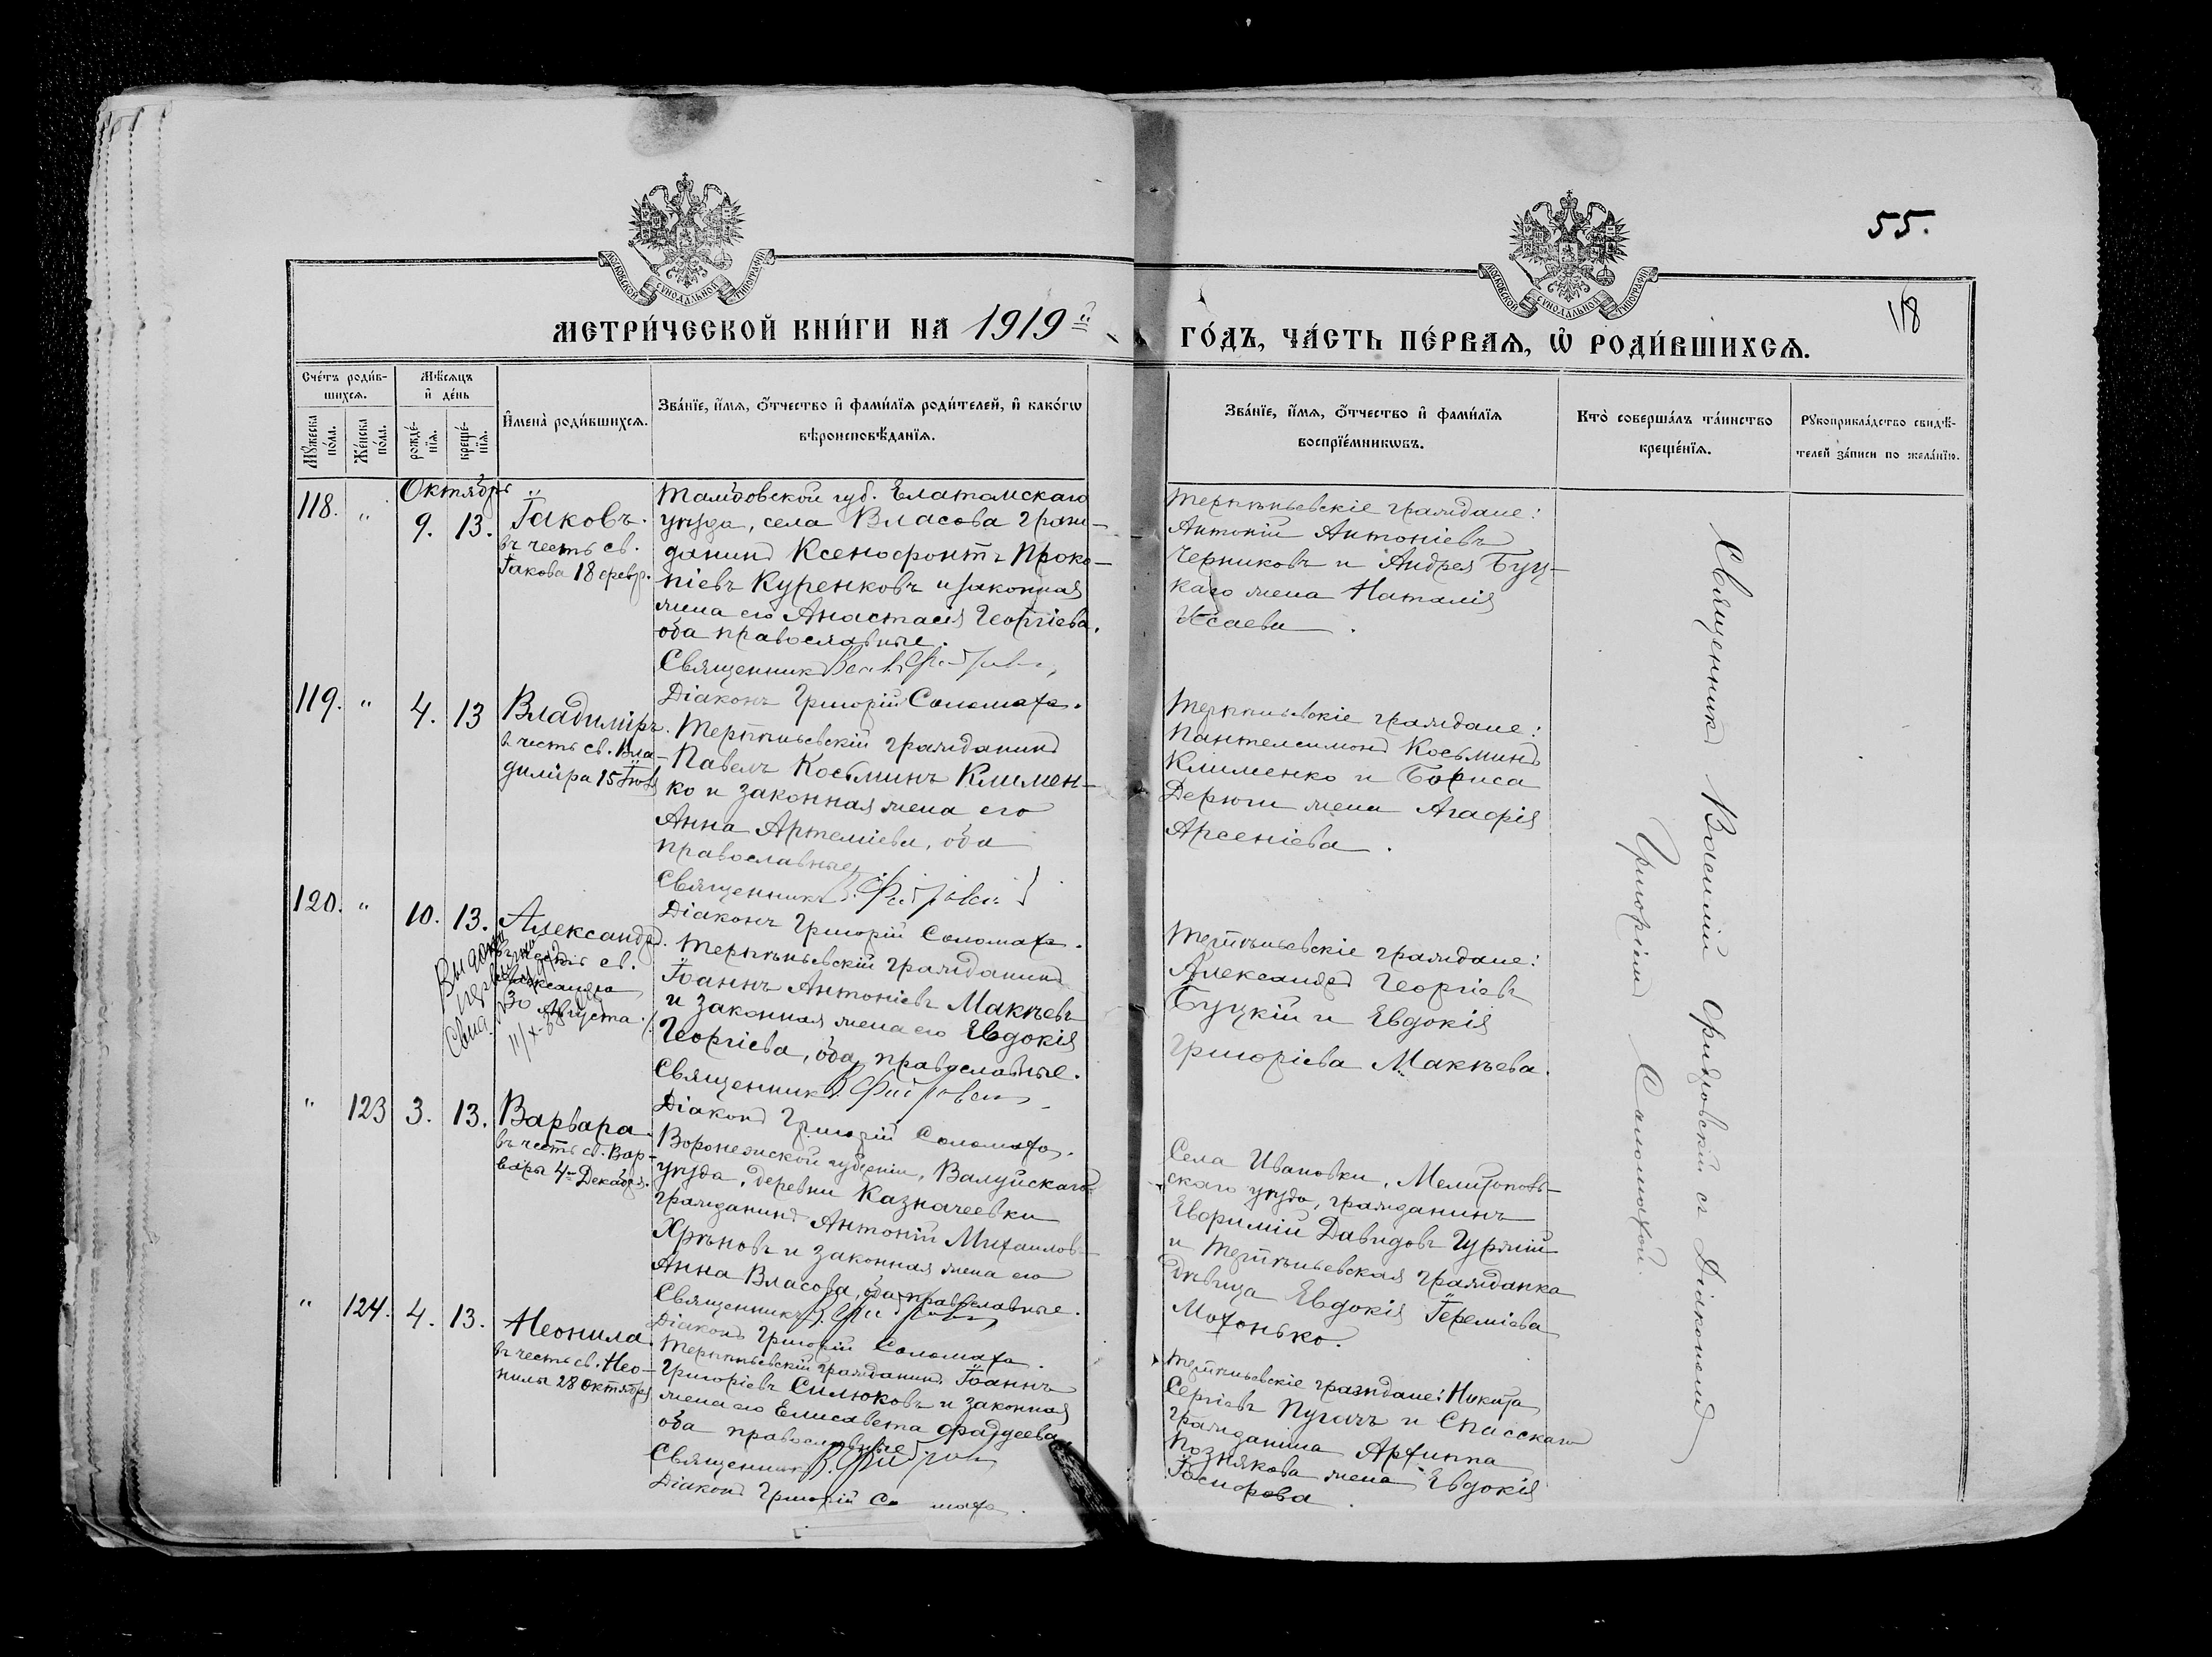 55.
118
МОСКОВСКОЙ СѴНОДАЛЬНОЙ ТИПОГРАФІИ
МОСКОВСКОЙ СѴНОДАЛЬНОЙ ТИПОГРАФІИ
МЕТРИ́ЧЕСКОЙ КНИ́ГИ НА 1919й
ГО́ДЪ, ЧА́СТЬ ПЕ́РВАѦ, Ѡ҆ РОДИ́ВШИХСѦ.
Сче́тъ роди́в-
шихсѧ.
Мꙋжеска по́ла.
Же́нска по́ла.
Мѣ́сѧцъ
и҆ де́нь
рожде́-
нїѧ.
креще́-
нїѧ.
И҆мена̀ роди́вшихсѧ.
Зва́нїе, и҆́мѧ, ѻ҆́тчество и҆ фами́лїѧ роди́телей, и҆ како́гѡ
вѣроисповѣ́данїѧ.
Зва́нїе, и҆́мѧ, ѻ҆́тчество и҆ фами́лїѧ
воспрїе́мникѡвъ.
Кто̀ соверша́лъ та́инство
креще́нїѧ.
Рꙋкоприкла́дство свидѣ́-
телей за́писи по жела́нїю.
Октябрь
118. " 9. 13.
Іаковъ.
въ честь св.
Іакова 18 февр.
Тамбовской губ. Елатомскаго
уѣзда, села Власова граж-
данинъ Ксенофонтъ Проко-
піевъ Куренковъ и законная
жена его Анастасія Георгіева.
оба православные.
Священникъ
Діаконъ Григорій Соломаха.
Терпѣньевскіе граждане:
Антоній Антоніевъ
Черниковъ и Андрея Буц-
каго жена Наталія
Исаева.
119. " 4. 13
Владиміръ.
въ честь св. Вла-
диміра 15 Іюля
Терпѣньевскій гражданинъ
Павелъ Косьминъ Климен-
ко и законная жена его
Анна Артеміева, оба
православные,
Священникъ В.
Діаконъ Григорій Соломаха.
Терпѣньевскіе граждане:
Пантелеимонъ Косьминъ
Клименко и Бориса
Дерюги жена Агафія
Арсеніева.
120. " 10. 13.
Александръ.
въ честь св.
Александра
30 Августа.
11/X-38
Терпѣньевскій гражданинъ
Іоаннъ Антоніевъ Макѣевъ
и законная жена его Евдокія
Георгіева, оба православные.
Священникъ В.
Діаконъ Григорій Соломаха.
Терпѣньевскіе граждане:
Александръ Георгіевъ
Буцкій и Евдокія
Григоріева Макѣева.
" 123 3. 13.
Варвара.
въ честь св. Вар-
вары 4го Декабря.
Воронежской губерніи, Валуйскаго
уѣзда, деревни Казначеевки
гражданинъ Антоній Михаиловъ
Хрѣновъ и законная жена его
Анна Власова, оба православные.
Священникъ В.
Діаконъ Григорій Соломаха.
Села Ивановки, Мелитополь-
скаго уѣзда, гражданинъ
Евфимій Давидовъ
и Терпѣньевская гражданка
дѣвица Евдокія Іереміева
Мохонько.
" 124. 4. 13.
Неонила.
въ честь св. Нео-
нилы 28 октября
Терпѣньевскій гражданинъ Іоаннъ
Григоріевъ Силюковъ и законная
жена его Елисавета Фаддеева,
оба православные.
Священникъ В.
Діаконъ Григорій Со маха.
Терпѣньевскіе граждане: Никита
Сергіевъ Пугачъ и Спасскаго
гражданина Архиппа
Познякова жена Евдокія
Іосифова.
Священникъ Василій съ Діакономъ
Григоріемъ Саломахой.